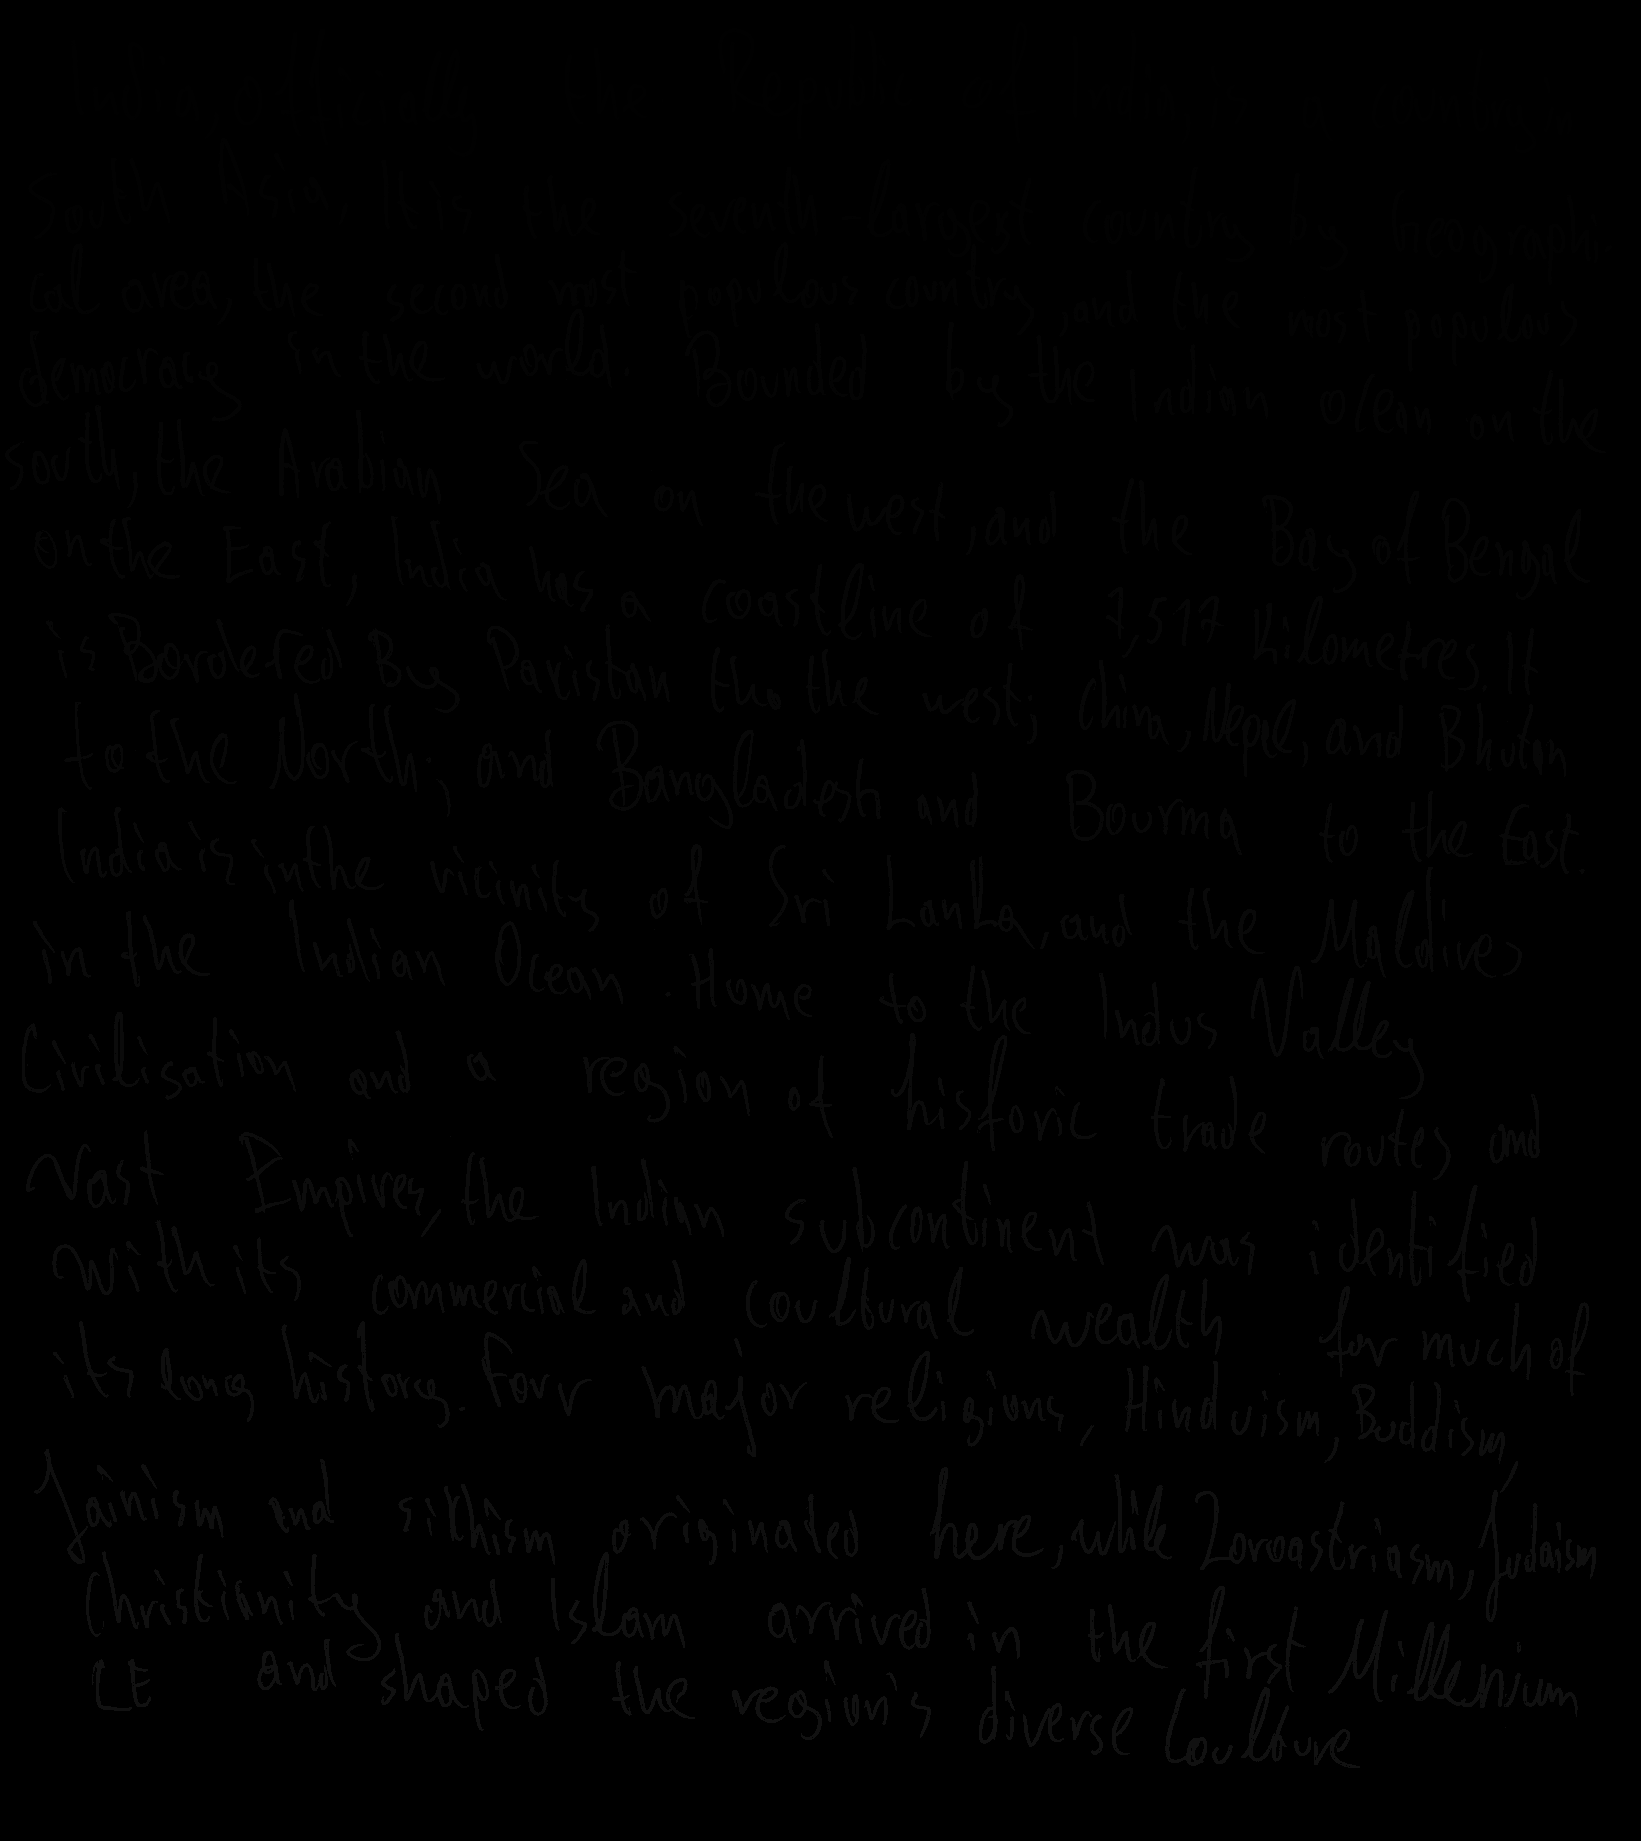 India, officially the Republic of India, is a country in
South Asia. It is the seventh-largest country by Geographi
cal area, the second most populous country, and the most populous
democracy in the world. Bounded by the Indian Ocean on the
south, the Arabian Sea on the west, and the Bay of Bengal
on the East, India has a coastline of 7,517 kilometres. It
is Bordered By Pakistan tho the west; China, Nepal, and Bhutan
to the North; and Bangladesh and Bourma to the East.
India is in the vicinity of Sri Lanka, and the Maldives
in the Indian Ocean. Home to the Indus Valley
Civilisation and a region of historic trade routes and
Vast Empires, the Indian subcontinent was identified
with its commercial and coultural wealth for much of
its long history. Four major religions, Hinduism, Buddism,
Jainism and sikhism originated here, while Zoroastriasm, Judaism
Christianity and Islam arrived in the first Millenium
CE and shaped the region's diverse Coulture